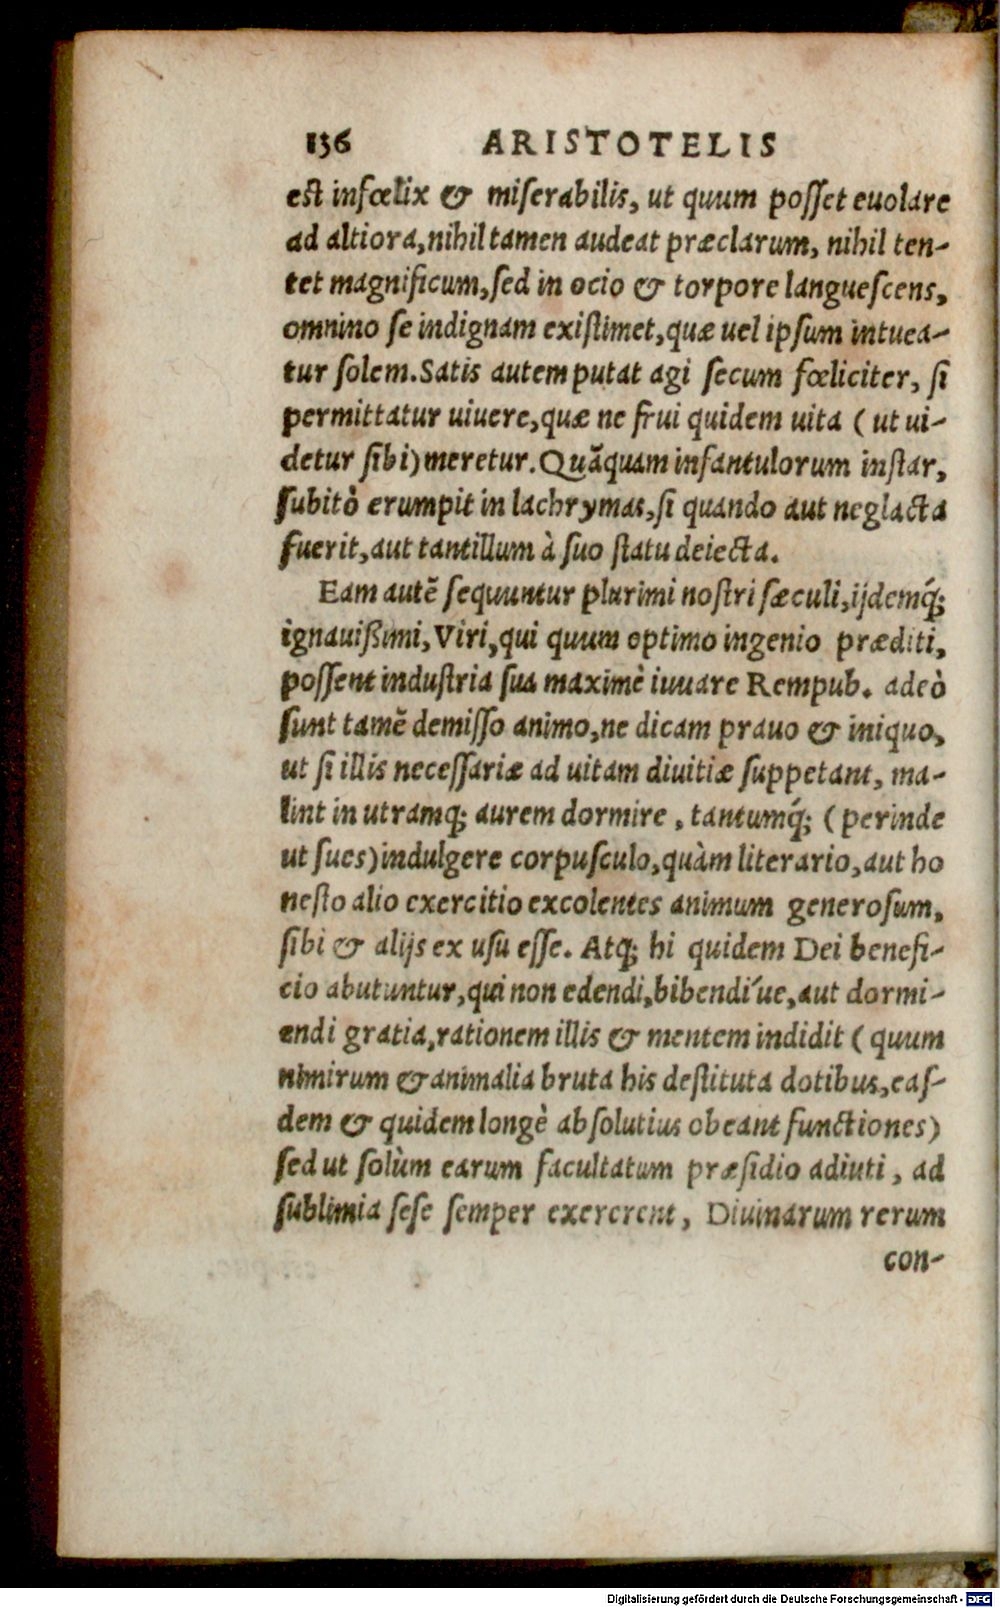 136 ARISTOTELIS
est infœlix & miserabilis, ut quum posset euolare
ad altiora, nihil tamen audeat præclarum, nihil ten-
tet magnificum, sed in ocio & torpore languescens,
omnino se indignam existimet, quæ uel ipsum intuea-
tur solem. Satis autem putat agi secum fœliciter, si
permittatur uiuere, quæ ne frui quidem uita ( ut ui-
detur sibi) meretur. Quāquam infantulorum instar,
subitò erumpit in lachrymas, si quando aut neglacta
fuerit, aut tantillum à suo statu deiecta.
Eam autē sequuntur plurimi nostri sæculi, ijdemq́;
ignauißimi, Viri, qui quum optimo ingenio præditi,
possent industria sua maximè iuuare Rempub. adeò
sunt tamē demisso animo, ne dicam prauo & iniquo,
ut si illis necessariæ ad uitam diuitiæ suppetant, ma-
lint in utramq; aurem dormire, tantumq́; ( perinde
ut sues) indulgere corpusculo, quàm literario, aut ho
nesto alio exercitio excolentes animum generosum,
sibi & alijs ex usu esse. Atq; hi quidem Dei benefi-
cio abutuntur, qui non edendi, bibendi´ue, aut dormi-
endi gratia, rationem illis & mentem indidit ( quum
nimirum & animalia bruta his destituta dotibus, eas-
dem & quidem longè absolutius obeant functiones)
sed ut solùm earum facultatum præsidio adiuti, ad
sublimia sese semper exererent, Diuinarum rerum
con-
Digitalisierung gefördert durch die Deutsche Forschungsgemeinschaft - DFG